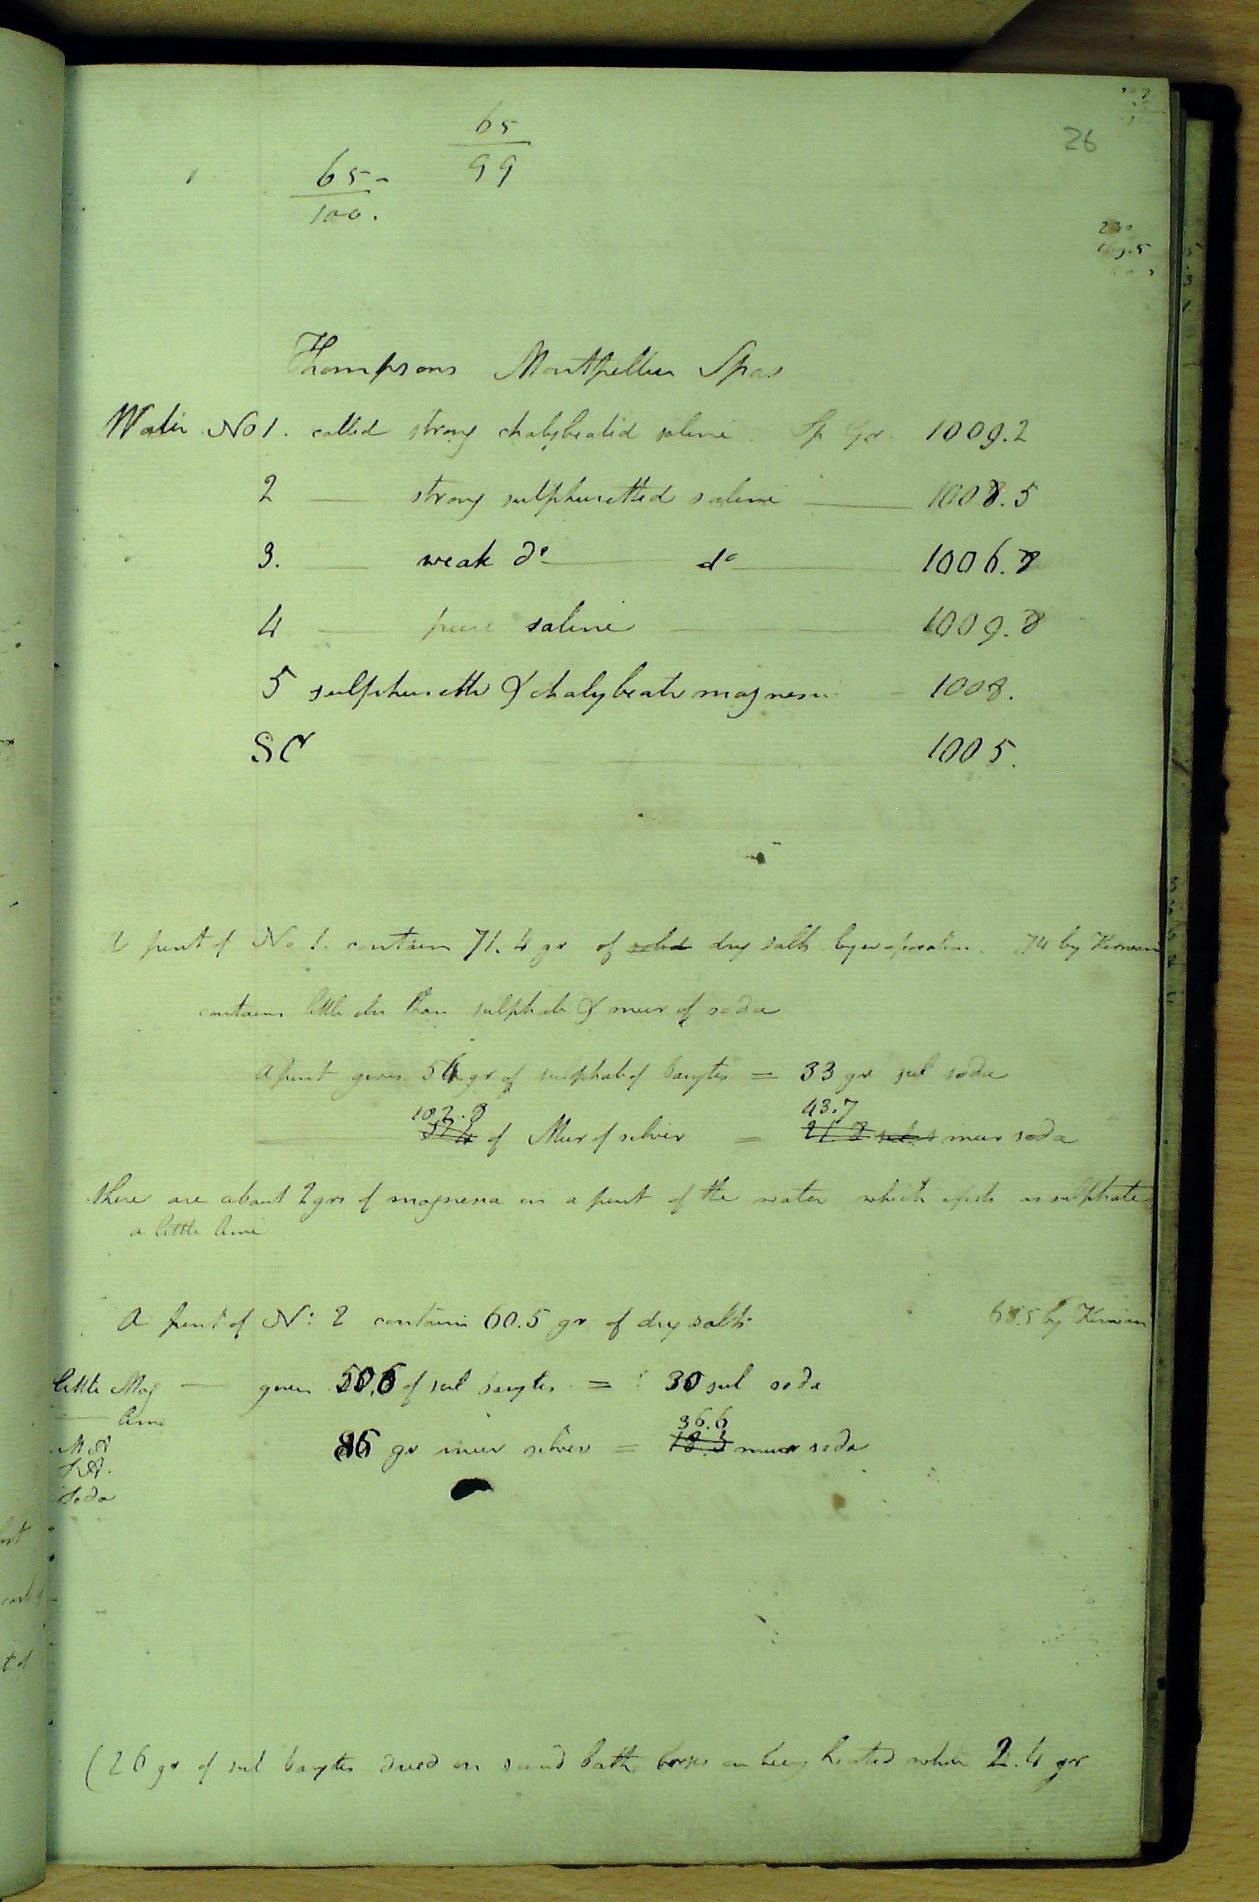 26
65
99
65
100.
230
169.5
Thompsons Montpellier Spas
Water No 1. called strong chalybeated saline Sp Gr. 1009.2
2 — strong sulphuretted saline — 1008.5
3. — weak do — do — 1006.8
4 — pure saline — 1009.8
5 sulphurette & chalybeate magnesia - 1008.
SC 1005.
A pint of No 1. contain 71.4 gr of solid dry salts by evaporation. 74 by Kirwan
contains little else than sulphate & mur of soda
A pint gives 54 gr of sulphate of barytes = 33 gr sul soda
102.8 43.7
of Mur of silver = mur soda
There are about 2 grs of magnesia in a pint of the water which exists as sulphate
a little lime
A pint of No: 2 contain 60.5 gr of dry salts 68.5 by Kirwan
little Mag — gives 50.6 of sul barytes = 30 sul soda
— lime
36.6
86 gr mur silver = 18.3 mur soda
M A
S A.
Soda
(26 gr of sul barytes dried on sand bath loses on being heated white 2.4 gr